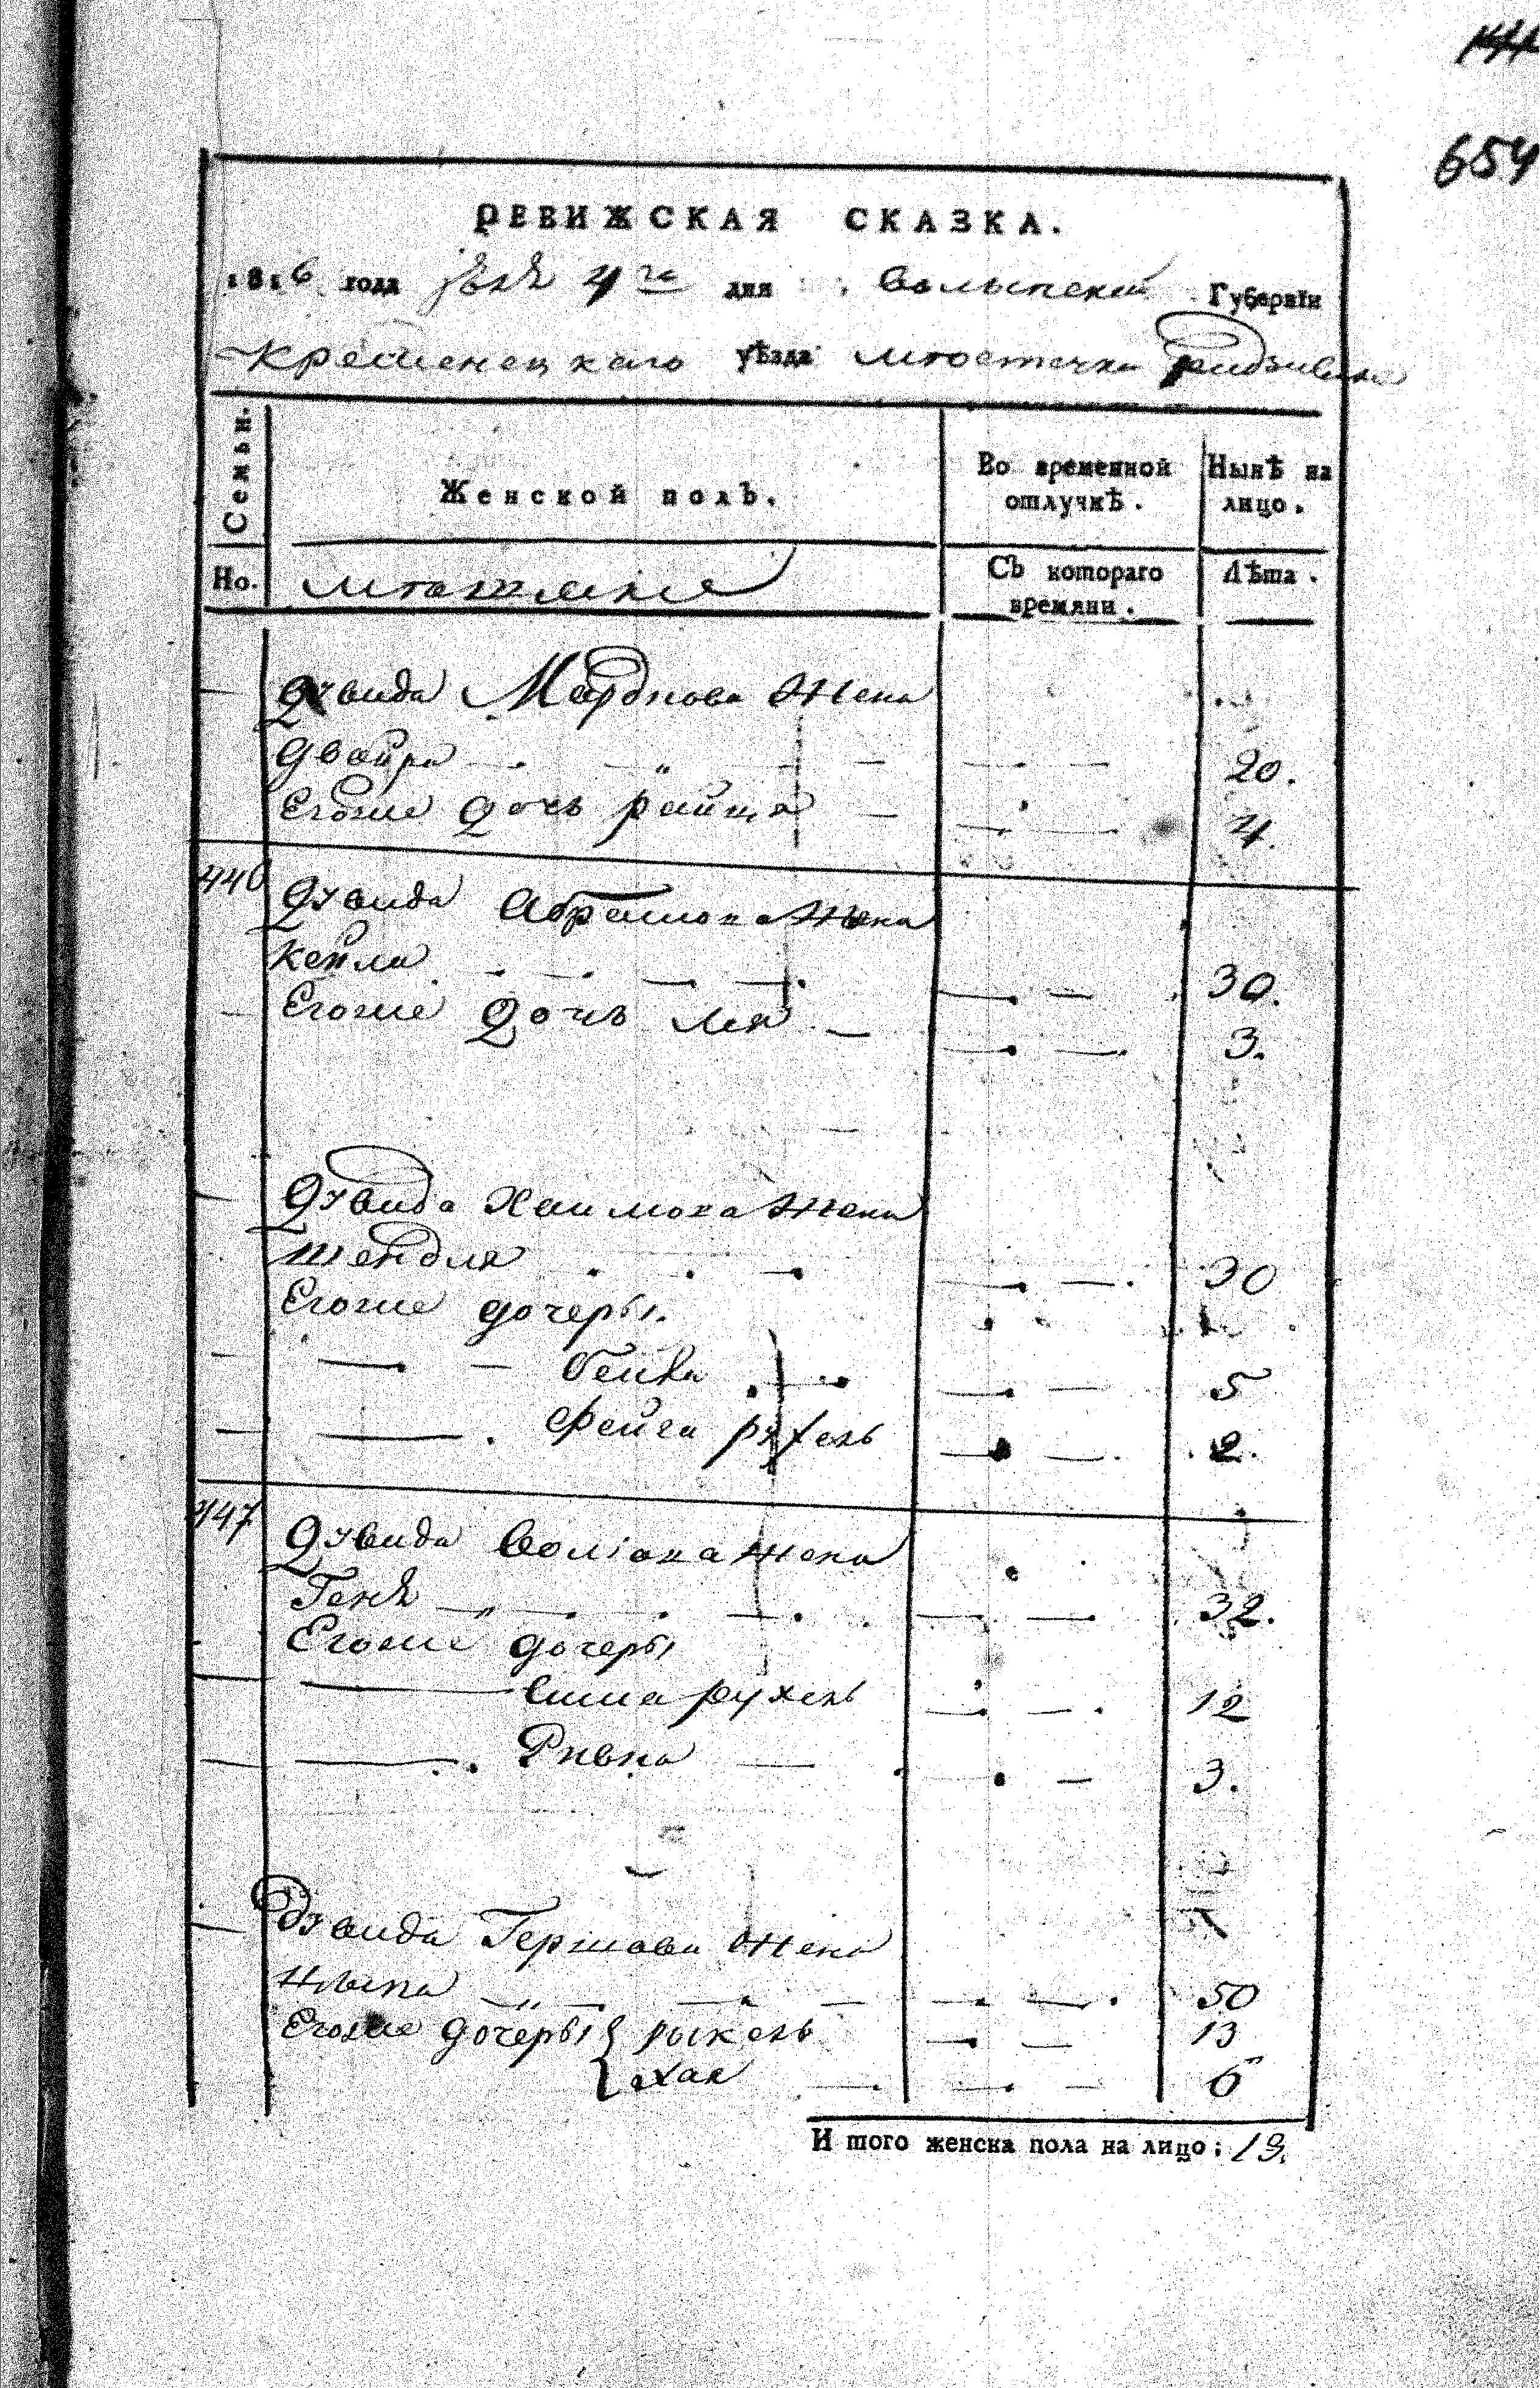 654
РЕВИЖСКАЯ СКАЗКА.
1816 года 4го дня Волынской Губернїи
Кременецкаго уѣзда местечка Радзивилова
Семьи.
Женской полъ.
Во временной отлучкѣ.
Нынѣ на лицо.
Но.
мещане
Съ котораго времяни.
Лѣта.
Давида Мардкова Жена
Двойра 20.
Егоже дочь 4.
446 Давида Абрамока Жена
Кейла 30.
Егоже дочь Лея 3.
Давида Хаимока Жена
Шендля 30
Егоже дочеры.
Бейла 5
Фейга рухель 2.
447 Давида Жена
Геня 32.
Егоже дочеры
рухель 12
Ривка 3.
Давида Гершова Жена
50
Егоже дочеры 13
Хая 6
И того женска пола на лицо: 13.